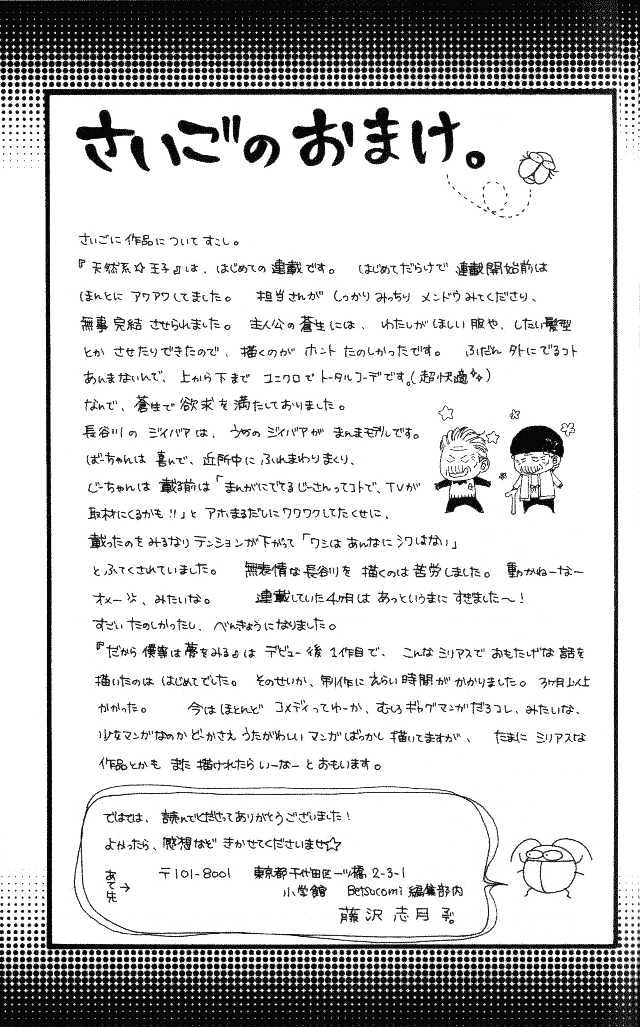 さいごのおまけ。
さいごに作品についてすこし。
『天然系☆王子』は、はじめての連載です。 はじめてだらけで連載開始前は
ほんとにアワアワしてました。 担当さんがしっかりみっちりメンドウみてくださり、
無事完結させられました。 主人公の蒼生には、わたしがほしい服や、したい髪型
とかさせたりできたので、描くのがホントたのしかったです。 ふだん外にでるコト
あんまないんで、上から下までユニクロでトータルコーデです。(超快適)
なんで、蒼生で欲求を満たしておりました。
長谷川のジイバアは、うちのジイバアがまんまモデルです。
ばーちゃんは喜んで、近所中にふれまわりまくり、
じーちゃんは載る前は「まんがにでてるじーさんってコトで、TVが
取材にくるかも!!」とアホまるだしにワクワクしてたくせに、
載ったのをみるなりテンションが下がって「ワシはあんなにシワはない」
とふてくされていました。 無表情な長谷川を描くのは苦労しました。動かねーなー
オメー、みたいな。 連載していた4ヶ月はあっというまにすぎました〜!
すごいたのしかったし、べんきょうになりました。
『だから僕等は夢をみる』はデビュー後1作目で、こんなシリアスでおもたげな話を
描いたのははじめてでした。そのせいか、制作にえらい時間がかかりました。3ヶ月以上
かかった。 今はほとんどコメディってゆーか、むしろギャグマンガだろコレ、みたいな、
少女マンガなのかどーかさえうたがわしいマンガばっかし描いてますが、たまにシリアスな
作品とかもまた描けれたらいーなーとおもいます。
ではでは、読んでくださってありがとうございました!
よかったら、感想などきかせてくださいませ☆
あて先→
〒101-8001 東京都千代田区一ツ橋2-3-1
小学館 Betsucomi編集部内
藤沢志月